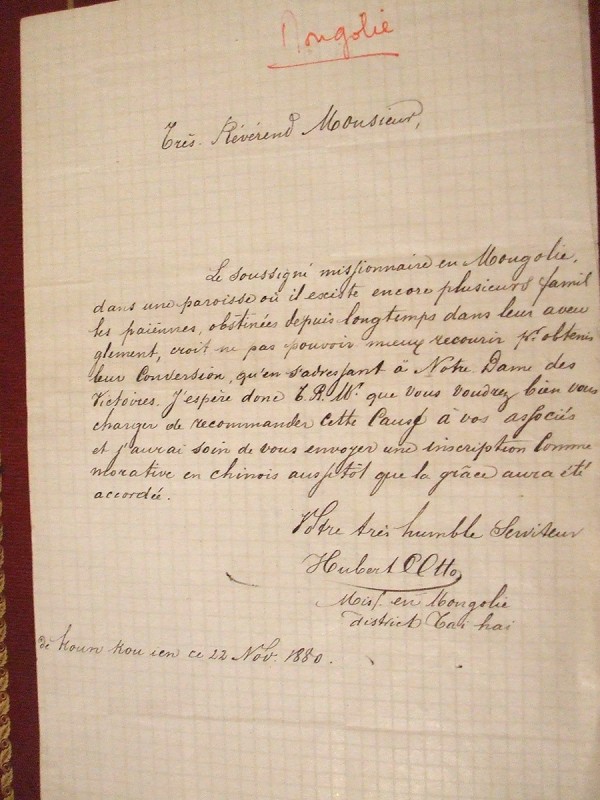 Mongolie
Très-Révérend Monsieur,
Le soussigné missionnaire en Mongolie,
dans une paroisse où il existe encore plusieurs famil
les païennes, obstinées depuis longtemps dans leur aveu
glement, croit ne pas pouvoir mieux recourir pr. obtenir
leur conversion, qu'en s'adressant à Notre Dame des
Victoires. J'espère donc T. R. Mr. que vous voudrez bien vous
charger de recommander cette Cause à vos associés
et j'aurai soin de vous envoyer une inscription Comme
morative en chinois aussitôt que la grâce aura été
accordée.
Votre très humble Serviteur
Hubert Otto
Miss. en Mongolie
district Taï hai
de Koun Kou ien ce 22 Nov. 1880.